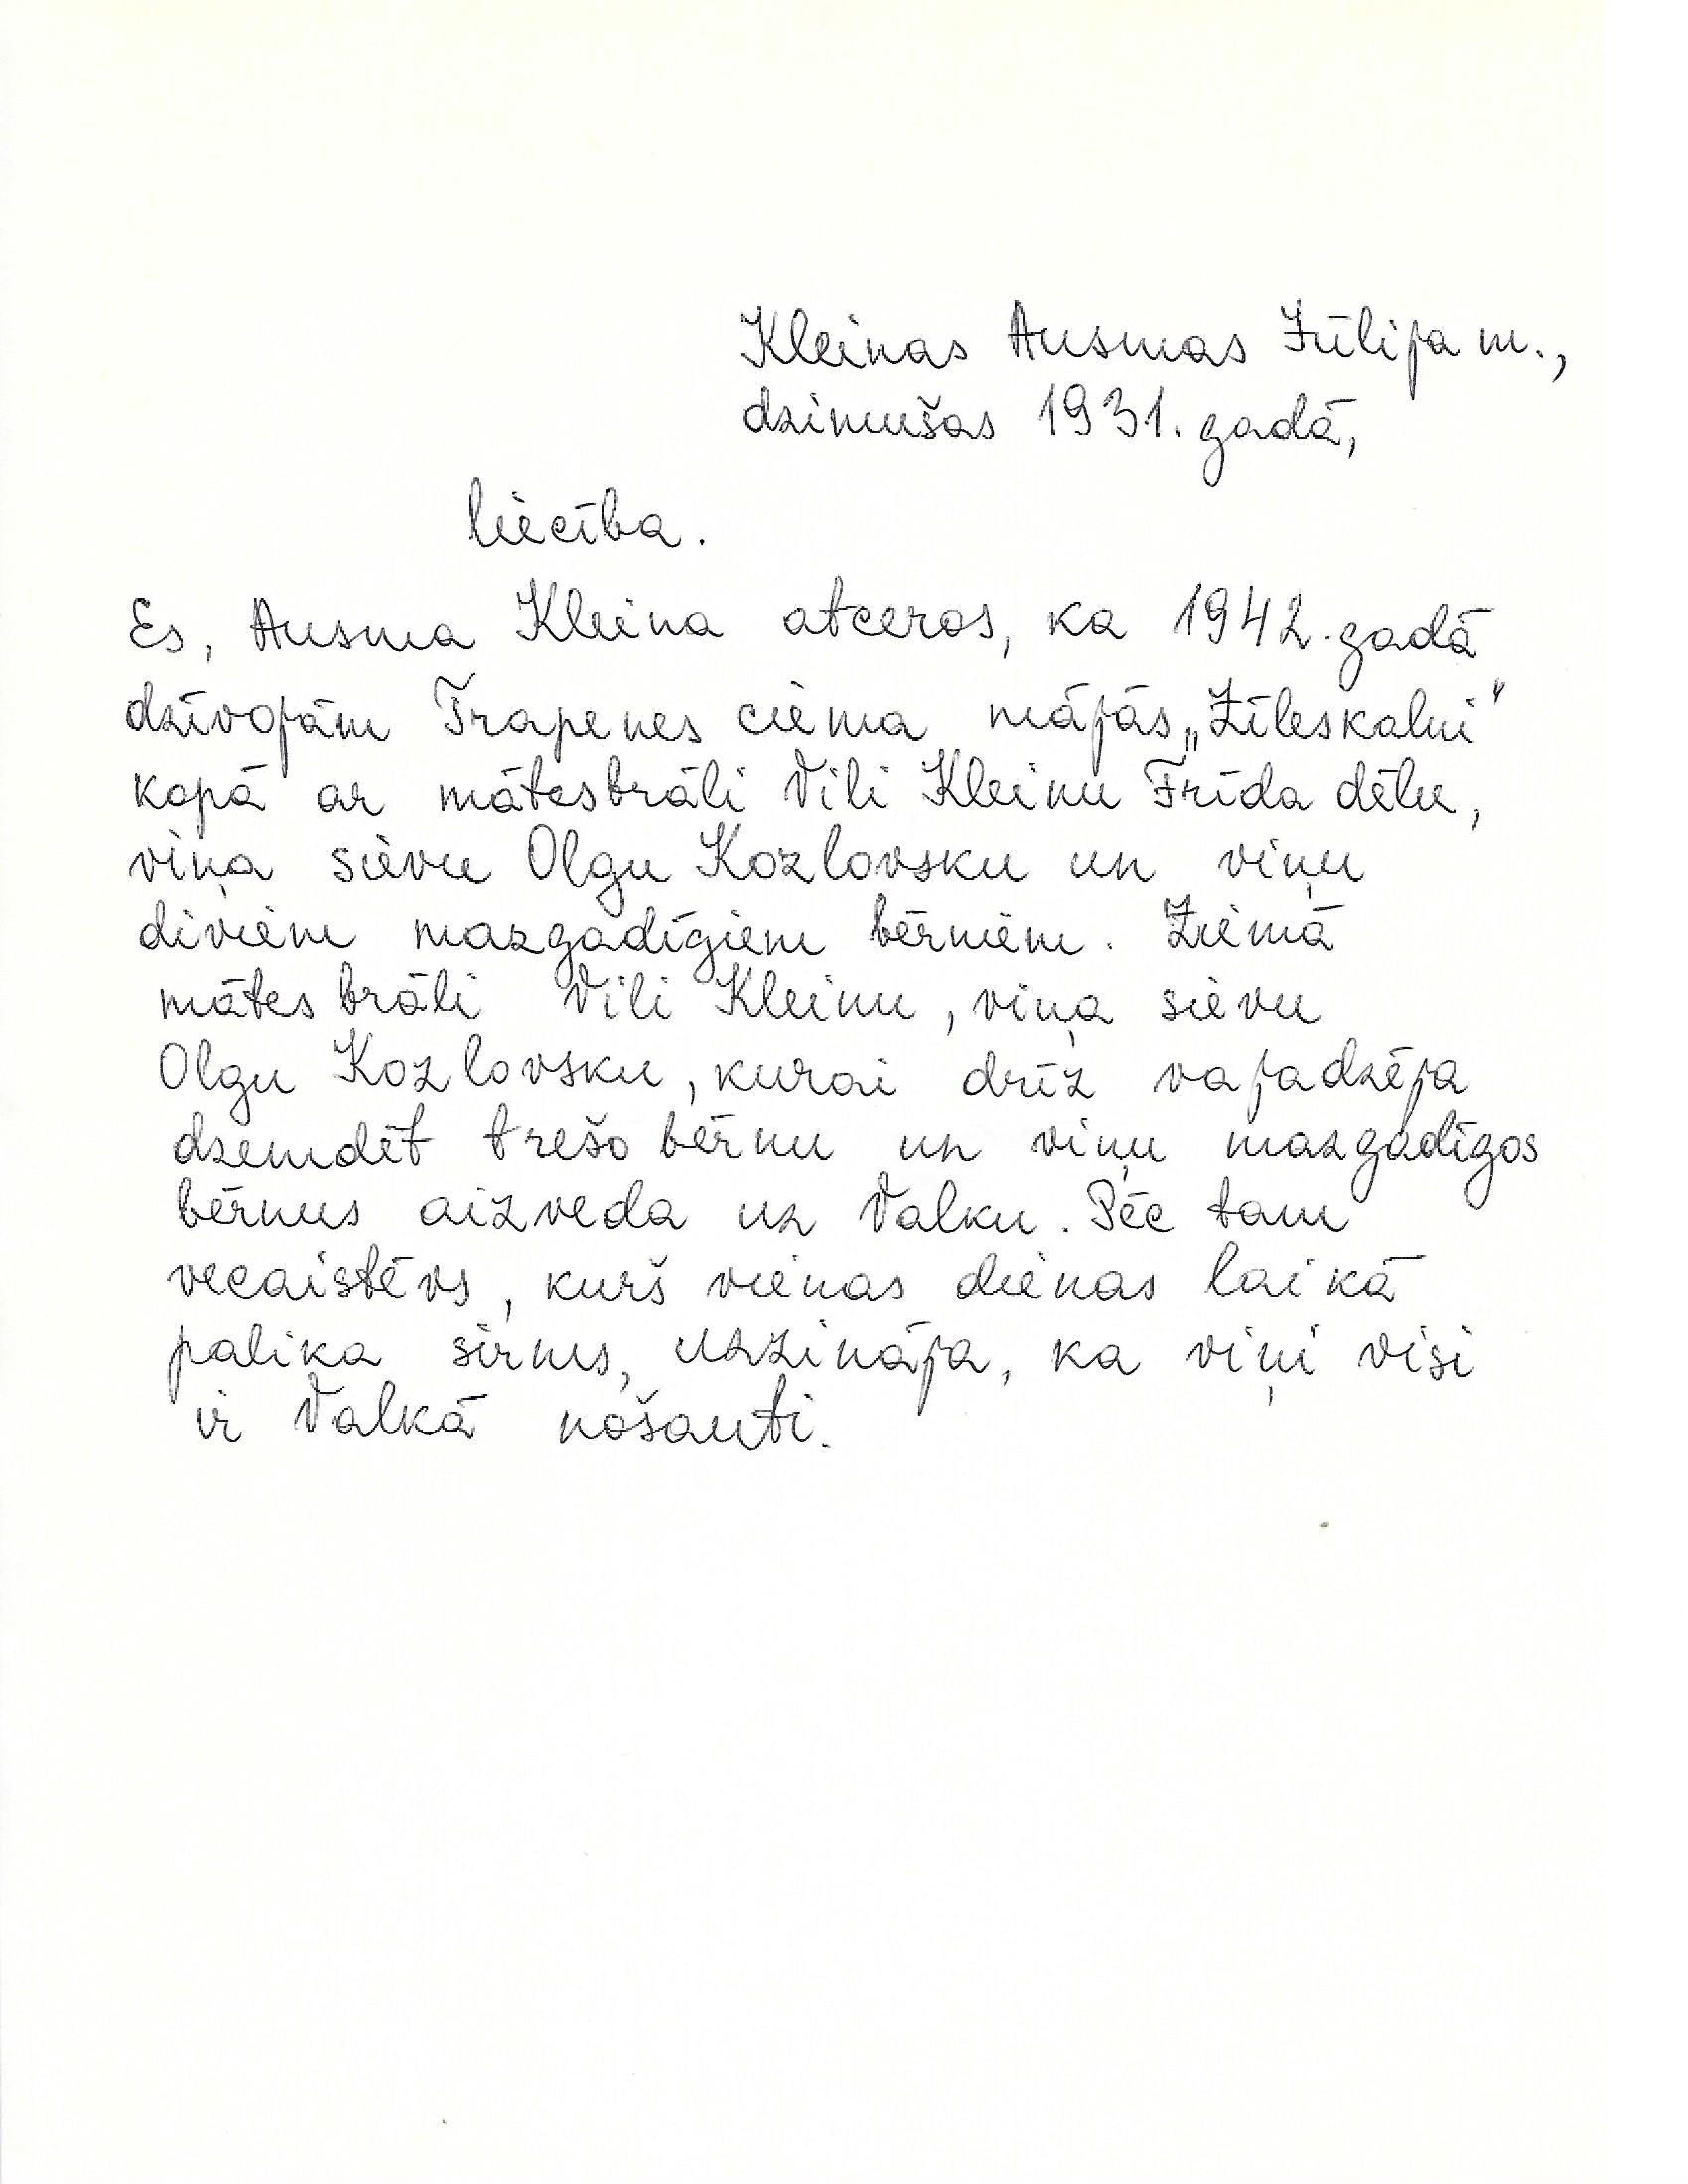 Kleinas Ausmas Jūlija m.,
dzimušas 1931. gadā,
liecība.
Es, Ausma Kleina atceros, ka 1942. gadā
dzīvojām Trapenes ciema mājās „Zīleskalni”
kopā ar mātesbrāli Vili Kleinu Frīda dēlu,
viņa sievu Olgu Kozlovsku un viņu
diviem mazgadīgiem bērniem. Ziemā
mātes brāli Vili Kleinu, viņa sievu
Olgu Kozlovsku, kurai drīz vajadzēja
dzemdēt trešo bērnu un viņu mazgadīgos
bērnus aizveda uz Valku. Pēc tam
vecaistēvs, kurš vienas dienas laikā
palika sirms, uzzināja, ka viņi visi
ir Valkā nošauti.